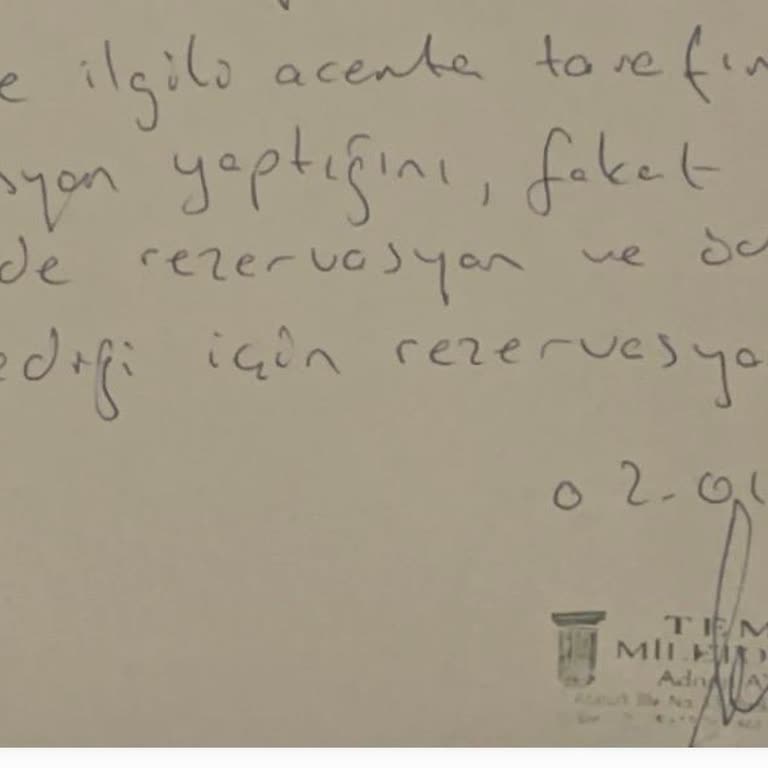 e ilgili acenta tarafın
syon yaptığını, fakat
de rezervasyon ve öd
ediği için rezervasyo
02.01
TEM
MİLE
Adn